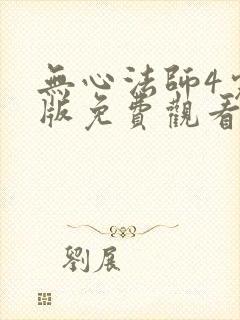 無心法師4
版免費觀看
劉展